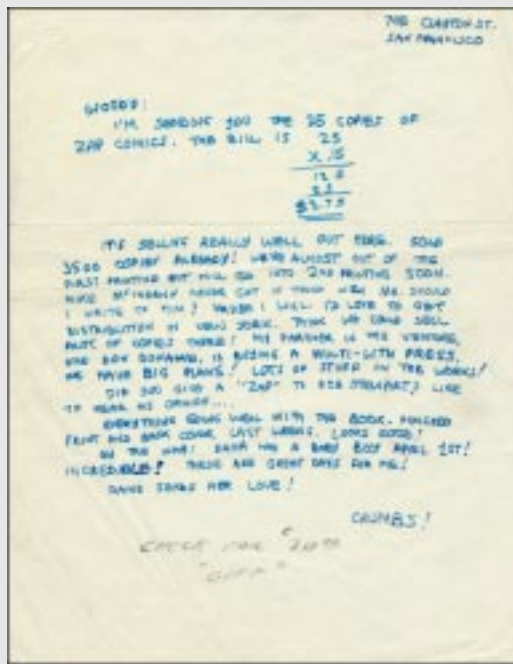 CLAYTON ST.
SAN FRANCISCO
I'M SENDING YOU THE 25 COPIES OF
ZAP COMICS. THE BILL IS 25
X .15
125
25
$3.75
IT'S SELLING REALLY WELL OUT HERE. SOLD
3500 COPIES ALREADY! WE'RE ALMOST OUT OF THE
FIRST PRINTING BUT WILL GO INTO 2ND PRINTING SOON.
MIKE NEVER GOT IN TOUCH WITH ME. SHOULD
I WRITE TO HIM? MAYBE I WILL. I'D LOVE TO GET
DISTRIBUTION IN NEW YORK. THINK WE COULD SELL
OF COPIES THERE! MY PARTNER IN THE VENTURE,
ONE DON DONAHUE, IS BUYING A MULTI-LITH PRESS.
WE HAVE BIG PLANS! LOTS OF STUFF IN THE WORKS!
DID YOU GIVE A "ZAP" TO BOB STEWART? LIKE
TO HEAR HIS
EVERYTHING GOING WELL WITH THE BOOK. FINISHED
FRONT AND BACK COVER LAST WEEK. LOOKS GOOD!
BY THE WAY! DANA HAD A BABY BOY APRIL 1ST!
INCREDIBLE! THESE ARE GREAT DAYS FOR ME!
DANA SENDS HER LOVE!
CRUMBS!
CHECK FOR